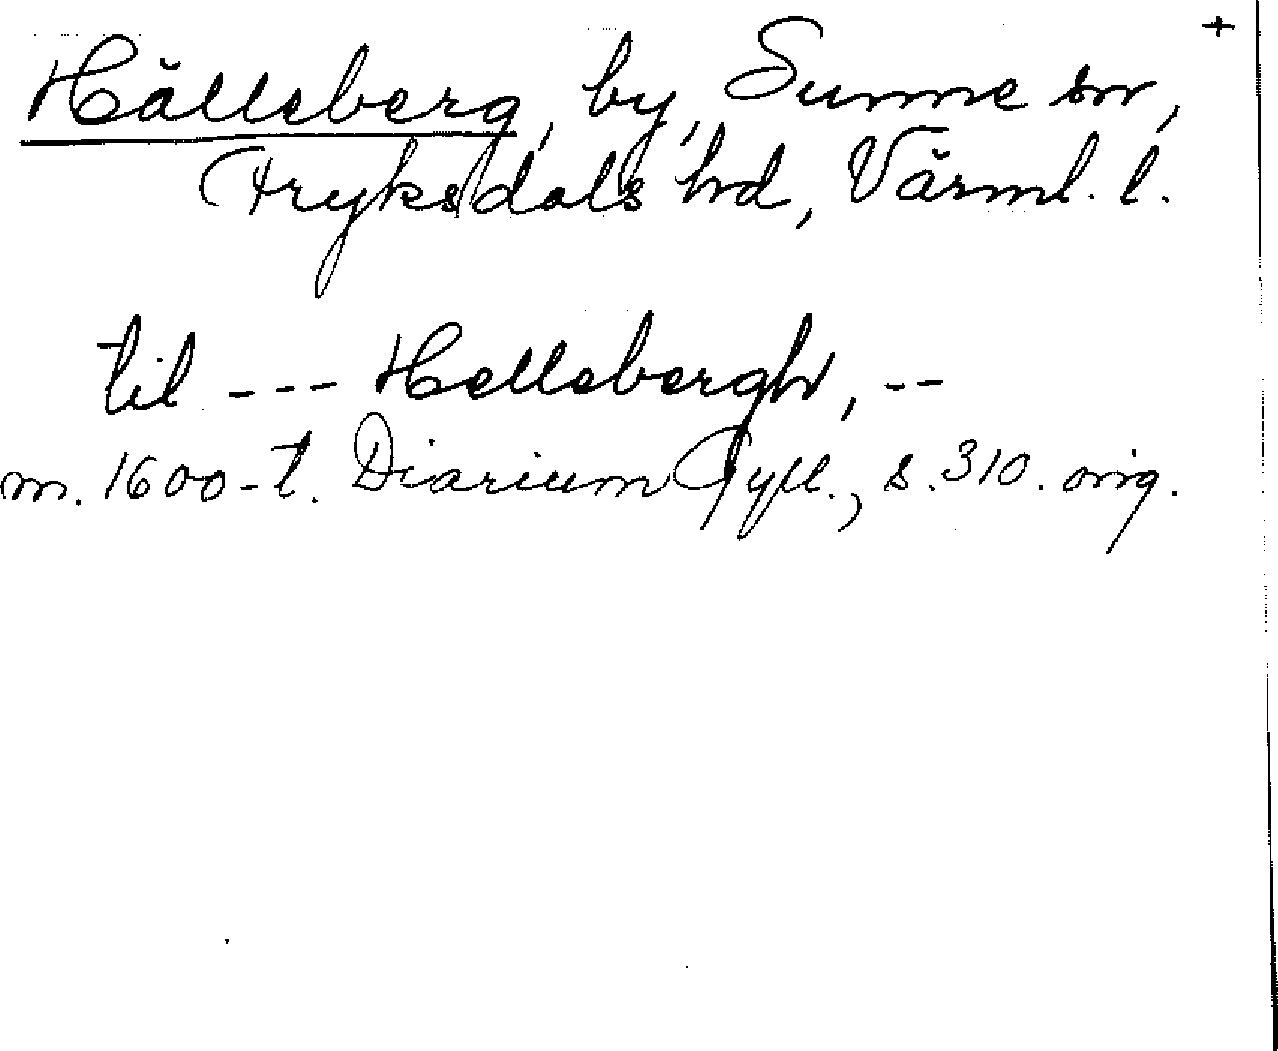 +
Hälleberg, by, Sunne sn,
Fryksdals hd, Värml. l.
til --- Hellebergh, --
m. 1600-t. Diarium Gyll., s. 310. orig.